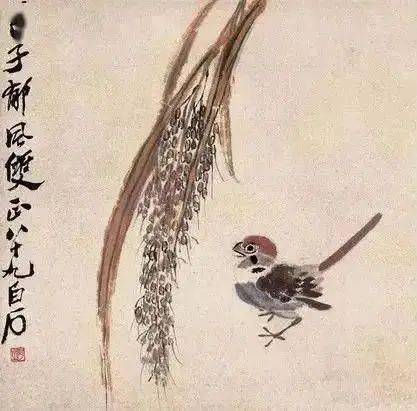 子郁風雙正八十九白石